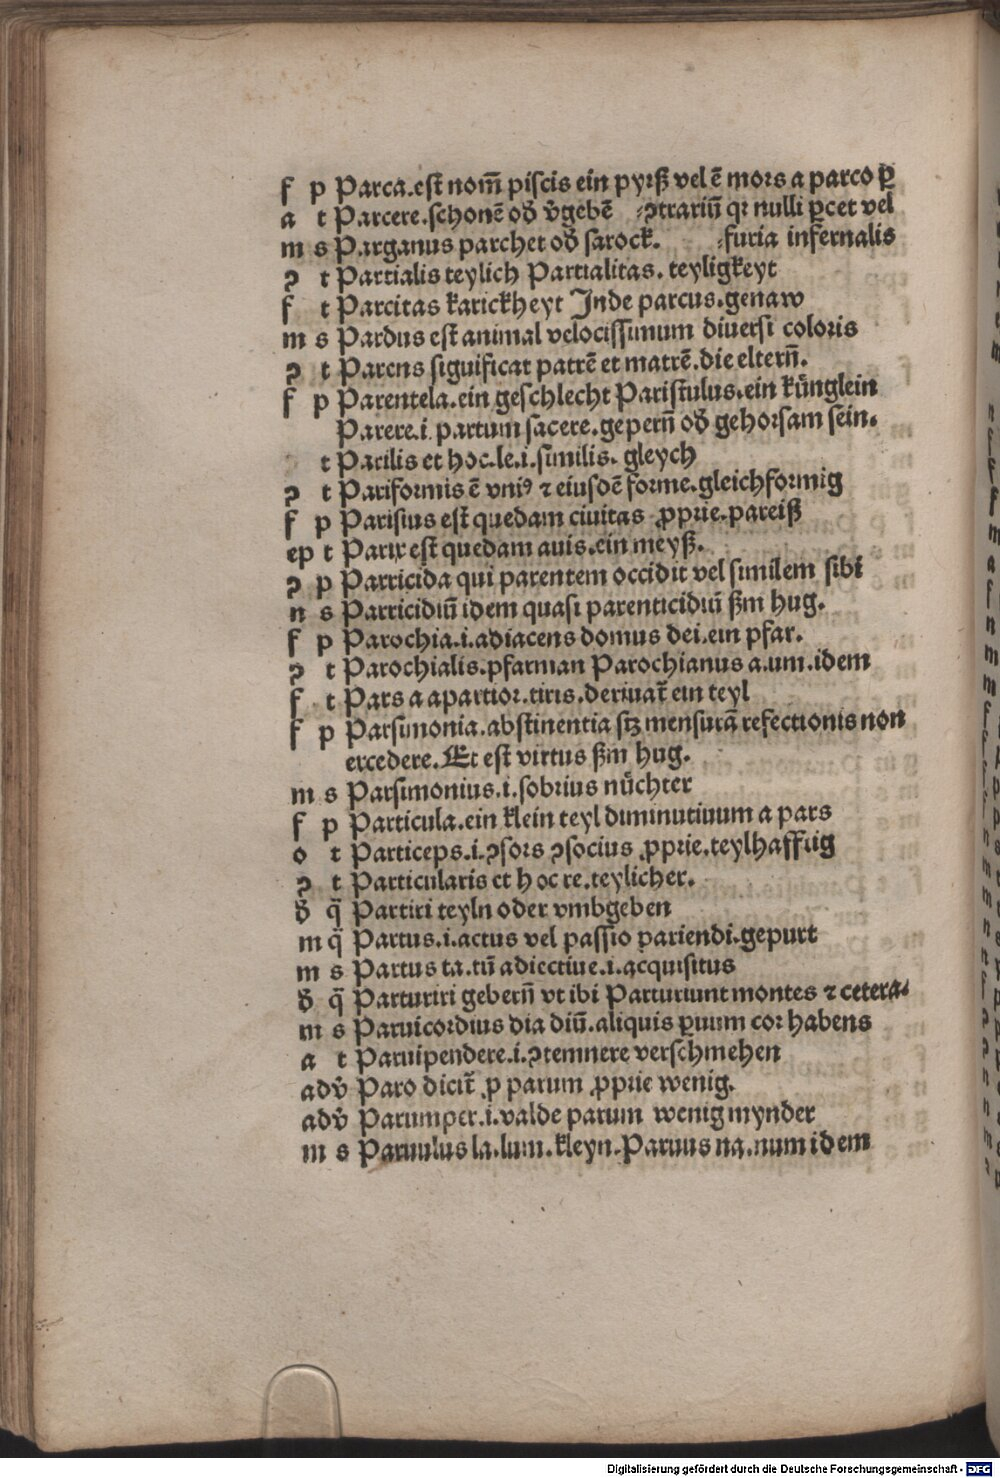 f p Parca.est nom̄ piscis ein pyrß vel ē mors a parco ꝑ
a t Parcere.schonē oď v̓gebē ꝯtrariū qꝛ nulli ꝑcet vel
m s Parganus parchet oď sarock. furia infernalis
ꝯ t Partialis teylich Partialitas.teyligkeyt
f t Parcitas karickheyt Inde parcus.genaw
m s Pardus est animal velocissimum diuersi coloris
ꝯ t Parens significat patrē et matrē.die elterñ.
f p Parentela.ein geschlecht Paristulus.ein kűnglein
Parere.i.partum facere.geperñ oď gehorsam sein.
t Parilis et hoc.le.i.similis.gleych
ꝯ t Pariformis ē vniꝰ ⁊ eiusdē forme.gleichformig
f p Parisius est quedam ciuitas ꝓprie.pareiß
ep t Parix est quedam auis.ein meyß.
ꝯ p Parricida qui parentem occidit vel similem sibi
n s Parricidiū idem quasi parenticidiū ẞm hug.
f p Parochia.i.adiacens domus dei.ein pfar.
ꝯ t Parochialis.pfarman Parochianus a.um.idem
f t Pars a apartior.tiris.deriuat̄ ein teyl
f p Parsimonia.abstinentia sꝫ mensurā refectionis non
excedere.Et est virtus ẞm hug.
m s Parsimonius.i.sobrius nűchter
f p Particula.ein klein teyl diminutiuum a pars
o t Particeps.i.ꝯsors ꝯsocius ꝓprie.teylhafftig
ꝯ t Particularis et hoc re.teylicher.
ď q̄ Partiri teyln oder vmbgeben
m q̄ Partus.i.actus vel passio pariendi.gepurt
m s Partus ta.tū adiectiue.i.acquisitus
ď q̄ Parturiri geberñ vt ibi Parturiunt montes ⁊ cetera.
m s Paruicordius dia diū.aliquis ꝑuum cor habens
a t Paruipendere.i.ꝯtemnere verschmehen
adv̓ Paro dicit̄ ꝓ parum ꝓprie wenig.
adv̓ Parumper.i.valde parum wenig mynder
m s Paruulus la.lum.kleyn.Paruus na.num idem
Digitalisierung gefördert durch die Deutsche Forschungsgemeinschaft - DFG